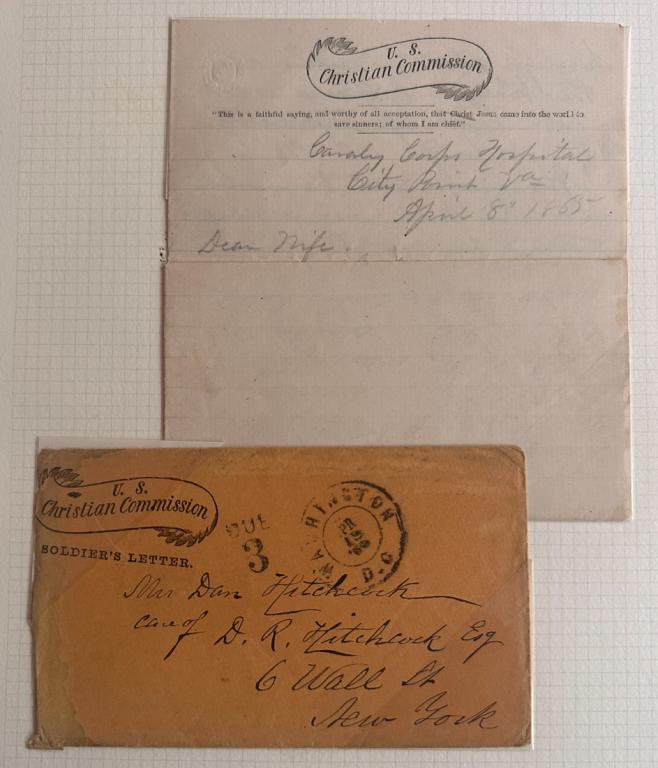 U. S.
Christian Commission
"This is a faithful saying, and worthy of all acceptation, that Christ Jesus came into the world to
save sinners; of whom I am chief."
Cavalry Corps Hospital
City Point Va
April 8" 1865
Dear Wife.
U. S.
Christian Commission
SOLDIER'S LETTER.
DUE
3
WASHINGTON
D.C
Mrs Dan Hitchcock
care of D. R. Hitchcock Esq
6 Wall St
New York